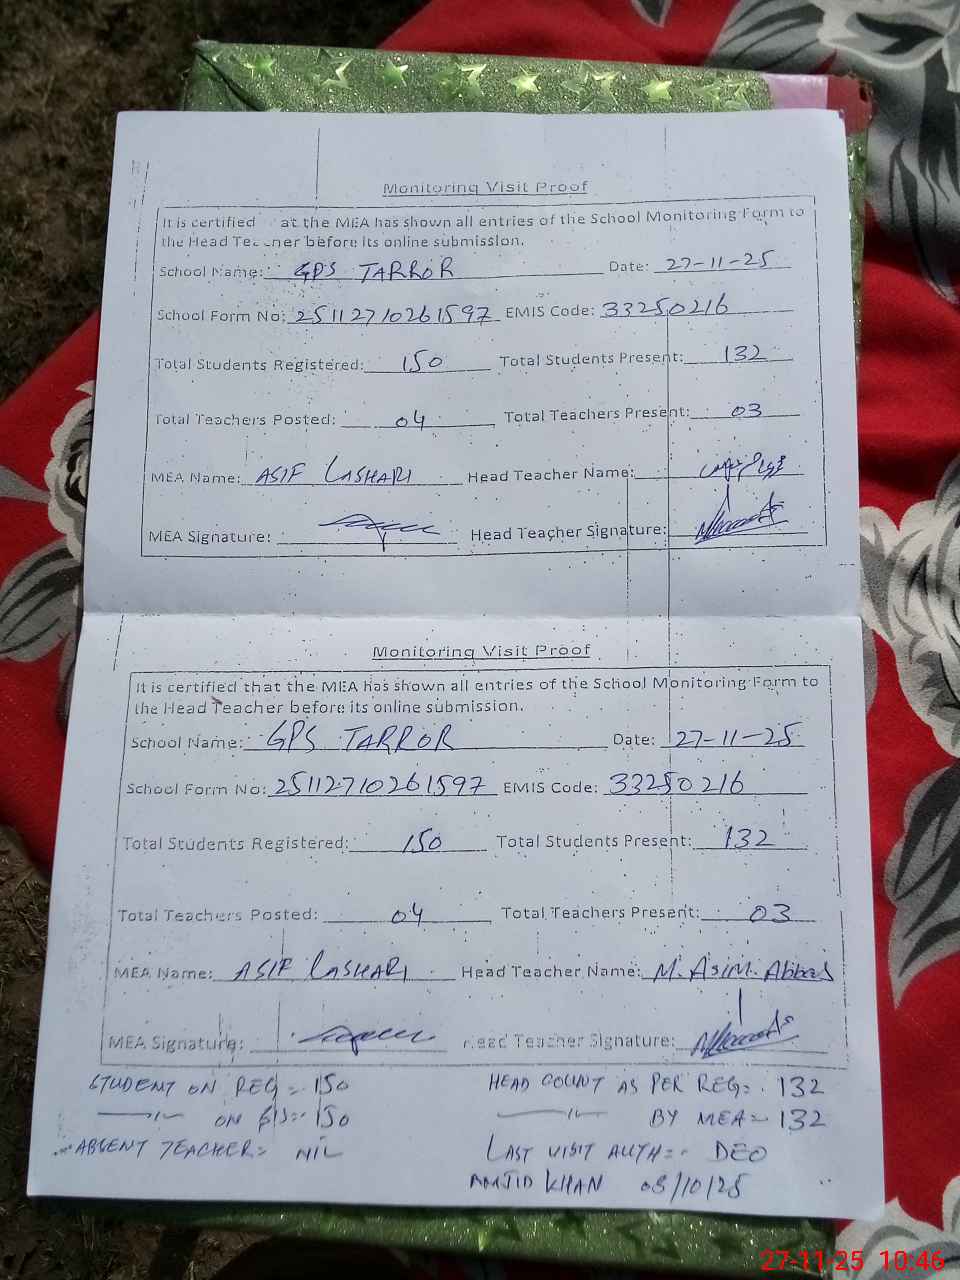 Monitoring Visit Proof
It is certified at the MEA has shown all entries of the School Monitoring Form to
the Head Teacher before its online submission.
School Name: GPS TARROR Date: 27-11-25
School Form No: 25112710261597 EMIS Code: 33250216
Total Students Registered: 150 Total Students Present: 132
Total Teachers Posted: 04 Total Teachers Present: 03
MEA Name: ASIF LASHARI Head Teacher Name:
MEA Signature: Head Teacher Signature:
Monitoring Visit Proof
It is certified that the MEA has shown all entries of the School Monitoring Form to
the Head Teacher before its online submission.
School Name: GPS TARROR Date: 27-11-25
School Form No: 25112710261597 EMIS Code: 33250216
Total Students Registered: 150 Total Students Present: 132
Total Teachers Posted: 04 Total Teachers Present: 03
MEA Name: ASIF LASHARI Head Teacher Name: M. ASIM. Abbas
MEA Signature: Head Teacher Signature:
STUDENT ON REG =. 150 HEAD COUNT AS PER REG=. 132
—〃— ON SIS=. 150 —〃— BY MEA= 132
ABSENT TEACHER= NIL LAST VISIT AUTH=. DEO
AMJID KHAN 08/10/25
27-11-25 10:46